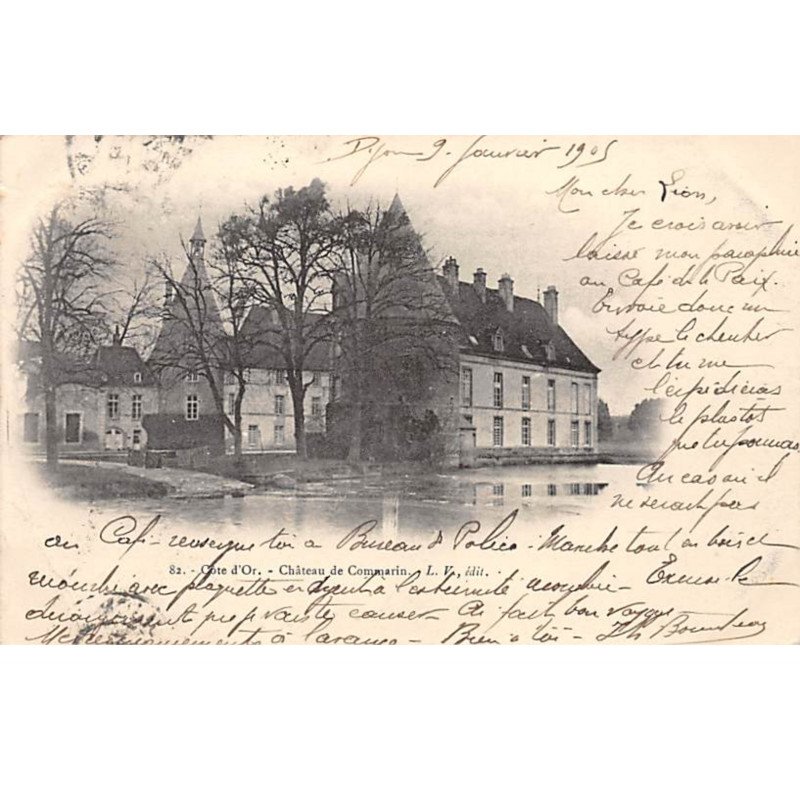 Dijon 9 Janvier 1905
Mon cher Léon,
Je crois avoir
laissé mon parapluie
au Café de la Paix.
Envoie donc un
type le chercher
et tu me
l'expédieras
le plus tôt
que tu pourras
Au cas où il
ne serait pas
au Café - renseigne toi au Bureau de Police - Manche tout en bois
82. - Côte d'Or. - Château de Commarin. L. V., édit.
avec plaquette en argent à l'extrémité Excuse le
dérangement que je vais te causer - Ai fait bon voyage
Mes remerciements à l'avance - Bien à toi -